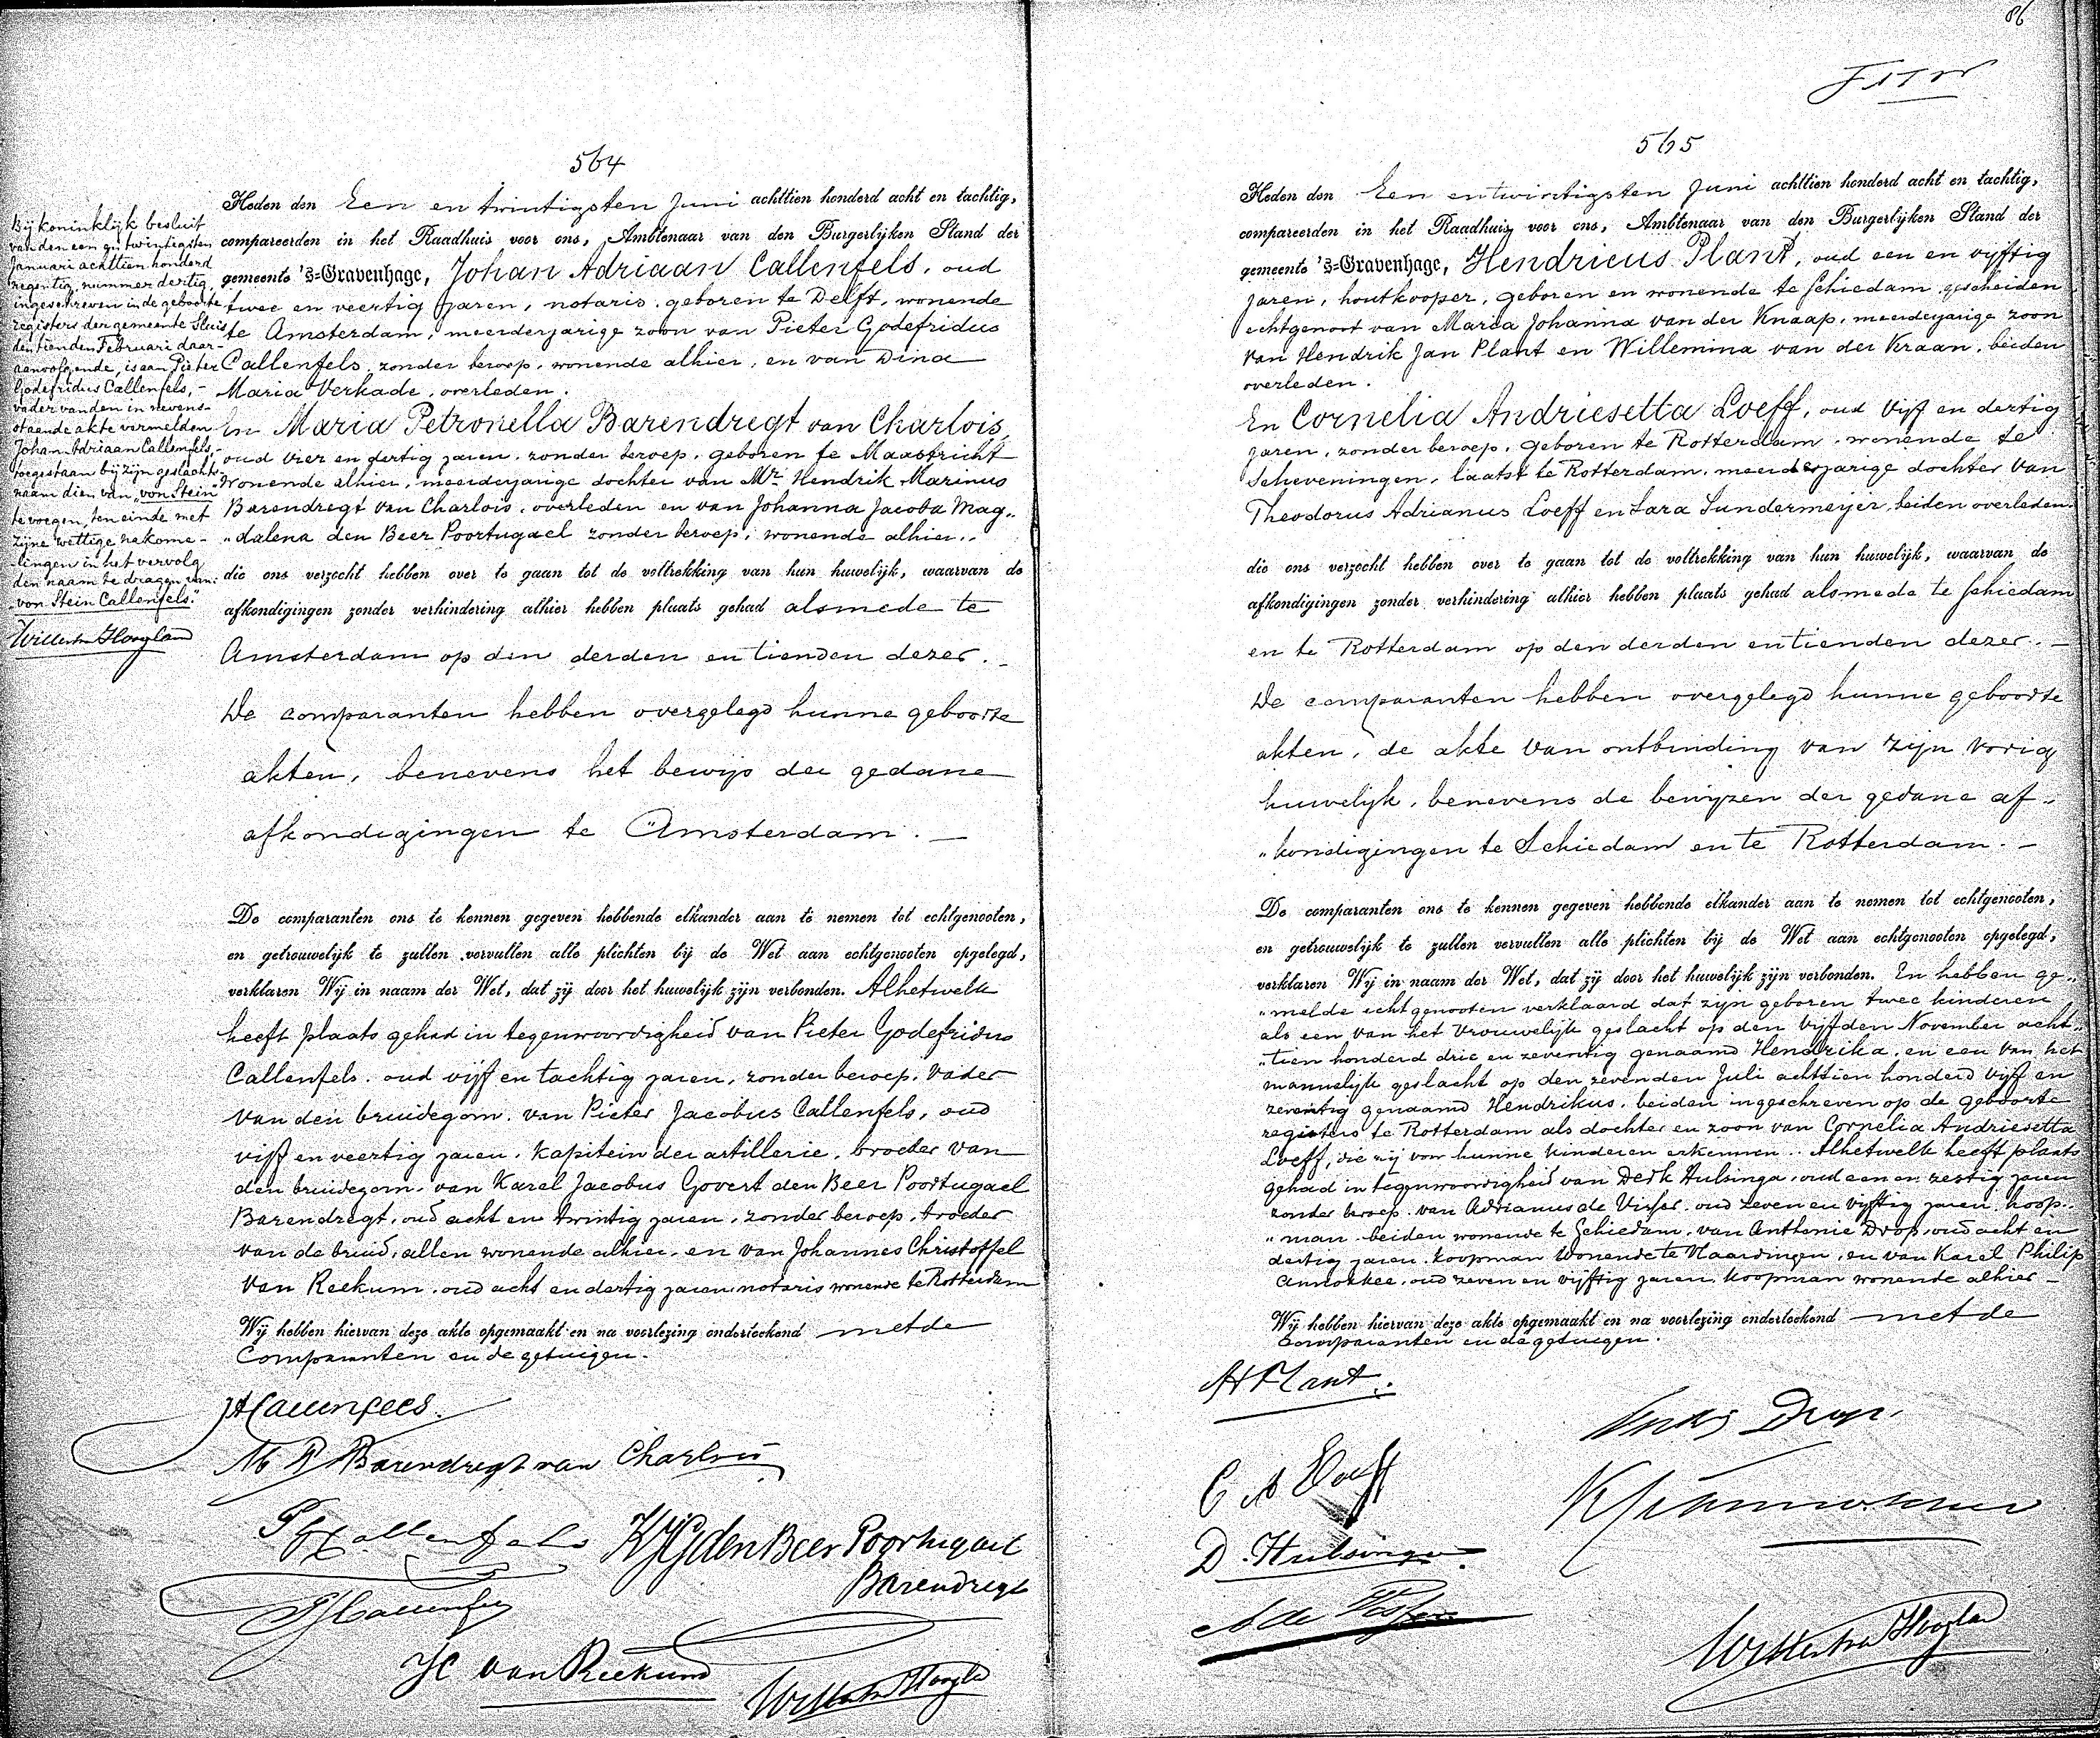 86
564
Heden den Een en twintigsten Juni achttien honderd acht en tachtig,
compareerden in het Raadhuis voor ons, Ambtenaar van den Burgerlijken Stand der
gemeente 's-Gravenhage, Johan Adriaan Callenfels, oud
twee en veertig jaren, notaris, geboren te Delft, wonende
te Amsterdam, meerderjarige zoon van Pieter Godefridus
Callenfels, zonder beroep, wonende alhier, en van Dina
Maria Verkade, overleden.
En Maria Petronella Barendregt van Charlois,
oud vier en dertig jaren, zonder beroep, geboren te Maastricht
wonende alhier, meerderjarige dochter van Mr. Hendrik Marinus
Barendregt van Charlois, overleden en van Johanna Jacoba Mag„
„dalena den Beer Poortugael zonder beroep, wonende alhier.
die ons verzocht hebben over te gaan tot de voltrekking van hun huwelijk, waarvan de
afkondigingen zonder verhindering alhier hebben plaats gehad alsmede te
Amsterdam op den derden en tienden dezer. —
De comparanten hebben overgelegd hunne geboorte
akten, benevens het bewijs der gedane
afkondigingen te Amsterdam. —
De comparanten ons te kennen gegeven hebbende elkander aan te nemen tot echtgenooten,
en getrouwelijk te zullen vervullen alle plichten bij de Wet aan echtgenooten opgelegd,
verklaren Wij in naam der Wet, dat zij door het huwelijk zijn verbonden. Alhetwelk
heeft plaats gehad in tegenwoordigheid van Pieter Godefridus
Callenfels, oud vijf en tachtig jaren, zonder beroep, vader
van den bruidegom, van Pieter Jacobus Callenfels, oud
vijf en veertig jaren, kapitein der artillerie, broeder van
den bruidegom, van Karel Jacobus Govert den Beer Poortugael
Barendregt, oud acht en twintig jaren, zonder beroep, broeder
van de bruid, allen wonende alhier, en van Johannes Christoffel
van Reekum, oud acht en dertig jaren, notaris wonende te Rotterdam
Wij hebben hiervan deze akte opgemaakt en na voorlezing onderteekend met de
Comparanten en de getuigen.
JA Callenfels
M P Barendregt van Charlois
PG Callenfels
KJG den Beer Poortugael
Barendregt
PJ Callenfels
JC van Reekum
Bij koninklijk besluit
van den een en twintigsten
Januari achttien honderd
negentig, nummer dertig,
ingeschreven in de geboorte
registers der gemeente Sluis
den tienden Februari daar-
aanvolgende, is aan Pieter
Godefridus Callenfels, -
vader van den in nevens-
staande akte vermelden
Johan Adriaan Callenfels, -
toegestaan bij zijn geslachts-
naam dien van „von Stein"
te voegen, ten einde met
zijne wettige nakome-
lingen in het vervolg
den naam te dragen van:
„von Stein Callenfels."
565
Heden den Een en twintigsten Juni achttien honderd acht en tachtig,
compareerden in het Raadhuis voor ons, Ambtenaar van den Burgerlijken Stand der
gemeente 's-Gravenhage, Hendricus Plant, oud een en vyftig
jaren, houtkooper, geboren en wonende te Schiedam, gescheiden
echtgenoot van Maria Johanna van der Knaap, meerderjarige zoon
van Hendrik Jan Plant en Willemina van der Kraan, beiden
overleden.
En Cornelia Andriesetta Loeff, oud Vijf en dertig
jaren, zonder beroep, geboren te Rotterdam, wonende te
Scheveningen, laatst te Rotterdam, meerderjarige dochter van
Theodorus Adrianus Loeff en Sara Sundermeijer, beiden overleden.
die ons verzocht hebben over te gaan tot de voltrekking van hun huwelijk, waarvan de
afkondigingen zonder verhindering alhier hebben plaats gehad alsmede te Schiedam
en te Rotterdam op den derden en tienden dezer. —
De comparanten hebben overgelegd hunne geboorte
akten, de akte van ontbinding van zijn vorig
huwelijk, benevens de bewijzen der gedane af„
„kondigingen te Schiedam en te Rotterdam. —
De comparanten ons te kennen gegeven hebbende elkander aan te nemen tot echtgenooten,
en getrouwelijk te zullen vervullen alle plichten bij de Wet aan echtgenooten opgelegd,
verklaren Wij in naam der Wet, dat zij door het huwelijk zijn verbonden. En hebben ge„
„melde echtgenooten verklaard dat zijn geboren twee kinderen
als een van het vrouwelijk geslacht op den vijfden November acht„
„tien honderd drie en zeventig genaamd Hendrika, en een van het
mannelijk geslacht op den zevenden Juli achttien honderd vijf en
zeventig genaamd Hendrikus, beiden ingeschreven op de geboorte
registers te Rotterdam als dochter en zoon van Cornelia Andriesetta
Loeff, die zij voor hunne kinderen erkennen. Alhetwelk heeft plaats
gehad in tegenwoordigheid van Derk Hulsinga, oud een en zestig jaren
zonder beroep, van Adrianus de Visser, oud zeven en vyftig jaren, koop„
„man, beiden wonende te Schiedam, van Anthonie Drop, oud acht en
dertig jaren, koopman wonende te Vlaardingen, en van Karel Philip
Annokkee, oud zeven en vijftig jaren, koopman wonende alhier —
Wij hebben hiervan deze akte opgemaakt en na voorlezing onderteekend met de
Comparanten en de getuigen.
H Plant.
Drop
C A Loeff
D. Hulsinga
A de Visser